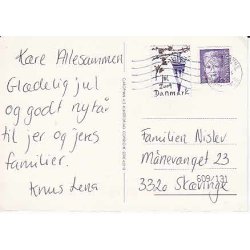 Kære Allesammen
Glædelig jul
og godt nytår
til jer og jeres
familier.
Knus Lena
Jul
Danmark
Familien Nislev
Månevænget 23
3320 Skævinge
609/131